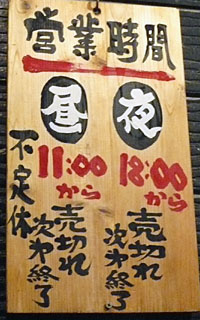 営業時間
昼
11:00
から
売切れ
次第終了
夜
18:00
から
売切れ
次第終了
不定休